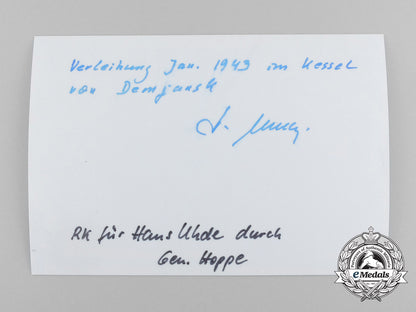 Verleihung Jan. 1943 im Kessel
von Demjansk
RK für Hans Uhde durch
Gen. Hoppe
eMedals